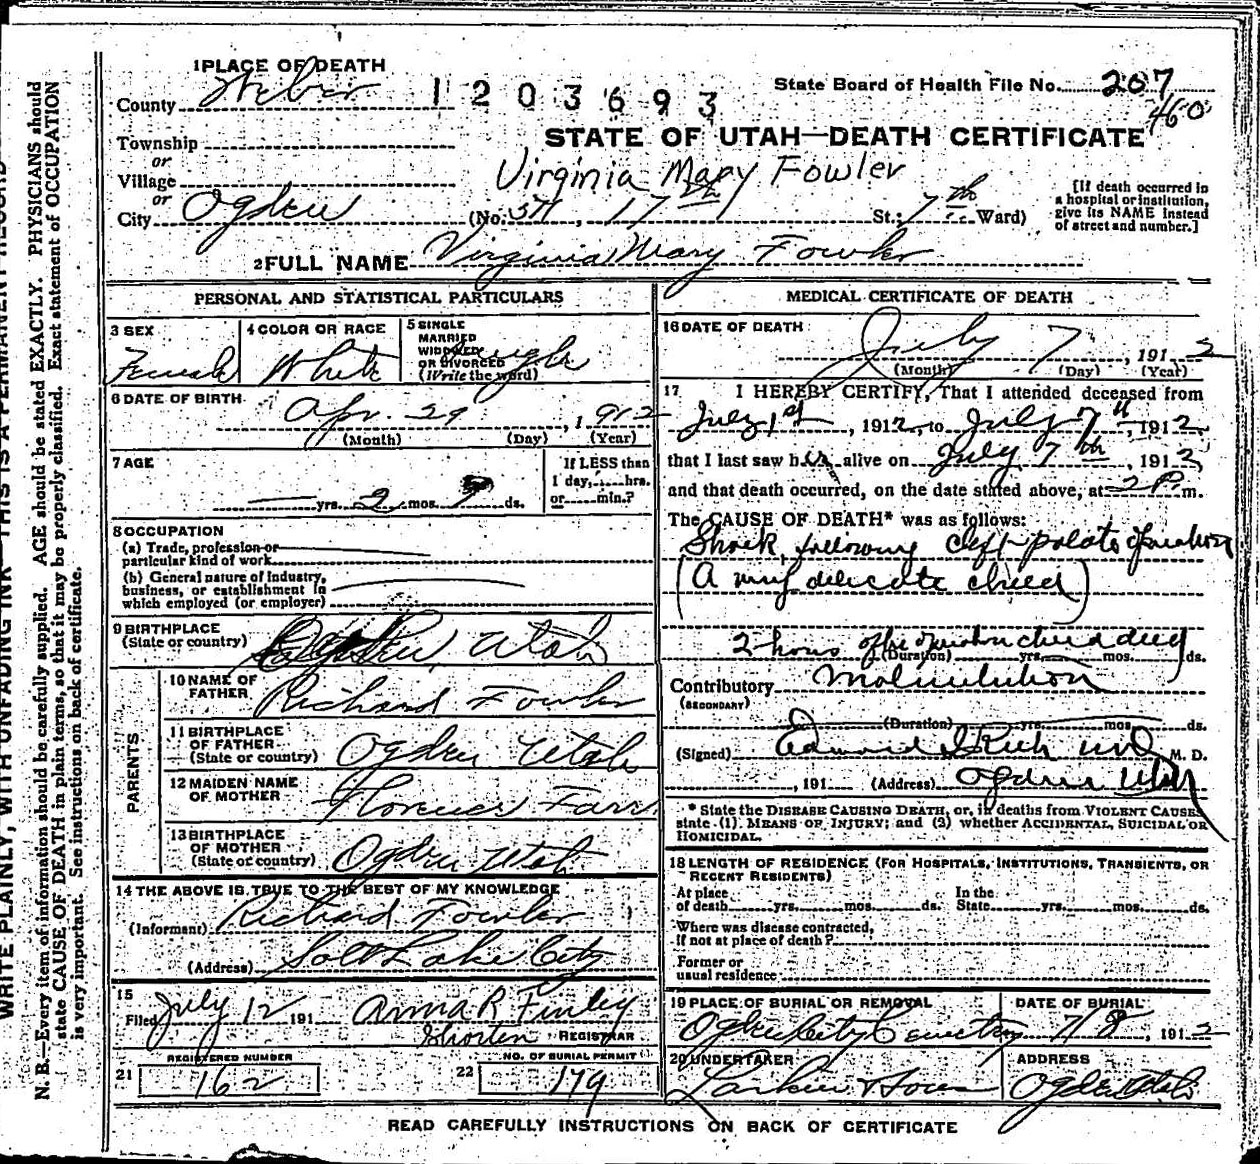 1 PLACE OF DEATH
County Weber
1203693
State Board of Health File No. 207
460
STATE OF UTAH—DEATH CERTIFICATE
Township
or
Village
or
City Ogden
Virginia Mary Fowler
(No. 571, 17th St.; 7th Ward)
[If death occurred in
a hospital or institution,
give its NAME instead
of street and number.]
2 FULL NAME Virginia Mary Fowler
PERSONAL AND STATISTICAL PARTICULARS
3 SEX
Female
4 COLOR OR RACE
White
5 SINGLE
MARRIED
WIDOWED
OR DIVORCED
(Write the word)
Single
6 DATE OF BIRTH
Apr. 29, 1912
(Month) (Day) (Year)
7 AGE
yrs. 2 mos. 9 ds.
If LESS than
1 day, hrs.
or min.?
8 OCCUPATION
(a) Trade, profession or
particular kind of work
(b) General nature of Industry,
business, or establishment in
which employed (or employer)
9 BIRTHPLACE
(State or country)
Ogden, Utah
PARENTS
10 NAME OF
FATHER
Richard Fowler
11 BIRTHPLACE
OF FATHER
(State or country)
Ogden Utah
12 MAIDEN NAME
OF MOTHER
Florence Farr
13 BIRTHPLACE
OF MOTHER
(State or country)
Ogden Utah
14 THE ABOVE IS TRUE TO THE BEST OF MY KNOWLEDGE
(Informant) Richard Fowler
(Address) Salt Lake City
15
Filed July 12 191 Anna R Finley
Shorten REGISTRAR
REGISTERED NUMBER
21 162
NO. OF BURIAL PERMIT
22 179
MEDICAL CERTIFICATE OF DEATH
16 DATE OF DEATH
July 7, 1912
(Month) (Day) (Year)
17 I HEREBY CERTIFY, That I attended deceased from
July 1st, 1912, to July 7th, 1912,
that I last saw her alive on July 7th, 1912,
and that death occurred, on the date stated above, at 2 P. m.
The CAUSE OF DEATH* was as follows:
Shock following cleft palate operation
(A very delicate child)
2 hours after operation child died
(Duration) yrs. mos. ds.
Contributory Malnutrition
(SECONDARY)
(Duration) yrs. mos. ds.
(Signed) Edward I Rich MD M. D.
, 191 (Address) Ogden Utah
* State the DISEASE CAUSING DEATH, or, in deaths from VIOLENT CAUSES
state (1) MEANS OF INJURY; and (3) whether ACCIDENTAL, SUICIDAL OR
HOMICIDAL.
18 LENGTH OF RESIDENCE (FOR HOSPITALS, INSTITUTIONS, TRANSIENTS, OR
RECENT RESIDENTS)
At place
of death yrs. mos. ds.
In the
State yrs. mos. ds.
Where was disease contracted,
If not at place of death?
Former or
usual residence
19 PLACE OF BURIAL OR REMOVAL
Ogden City Cemetery
DATE OF BURIAL
7/8, 1912
20 UNDERTAKER
Larkin & Sons
ADDRESS
Ogden Utah
READ CAREFULLY INSTRUCTIONS ON BACK OF CERTIFICATE
WRITE PLAINLY, WITH UNFADING INK—THIS IS A PERMANENT RECORD
N. B.—Every item of information should be carefully supplied. AGE should be stated EXACTLY. PHYSICIANS should
state CAUSE OF DEATH in plain terms, so that it may be properly classified. Exact statement of OCCUPATION
is very important. See instructions on back of certificate.